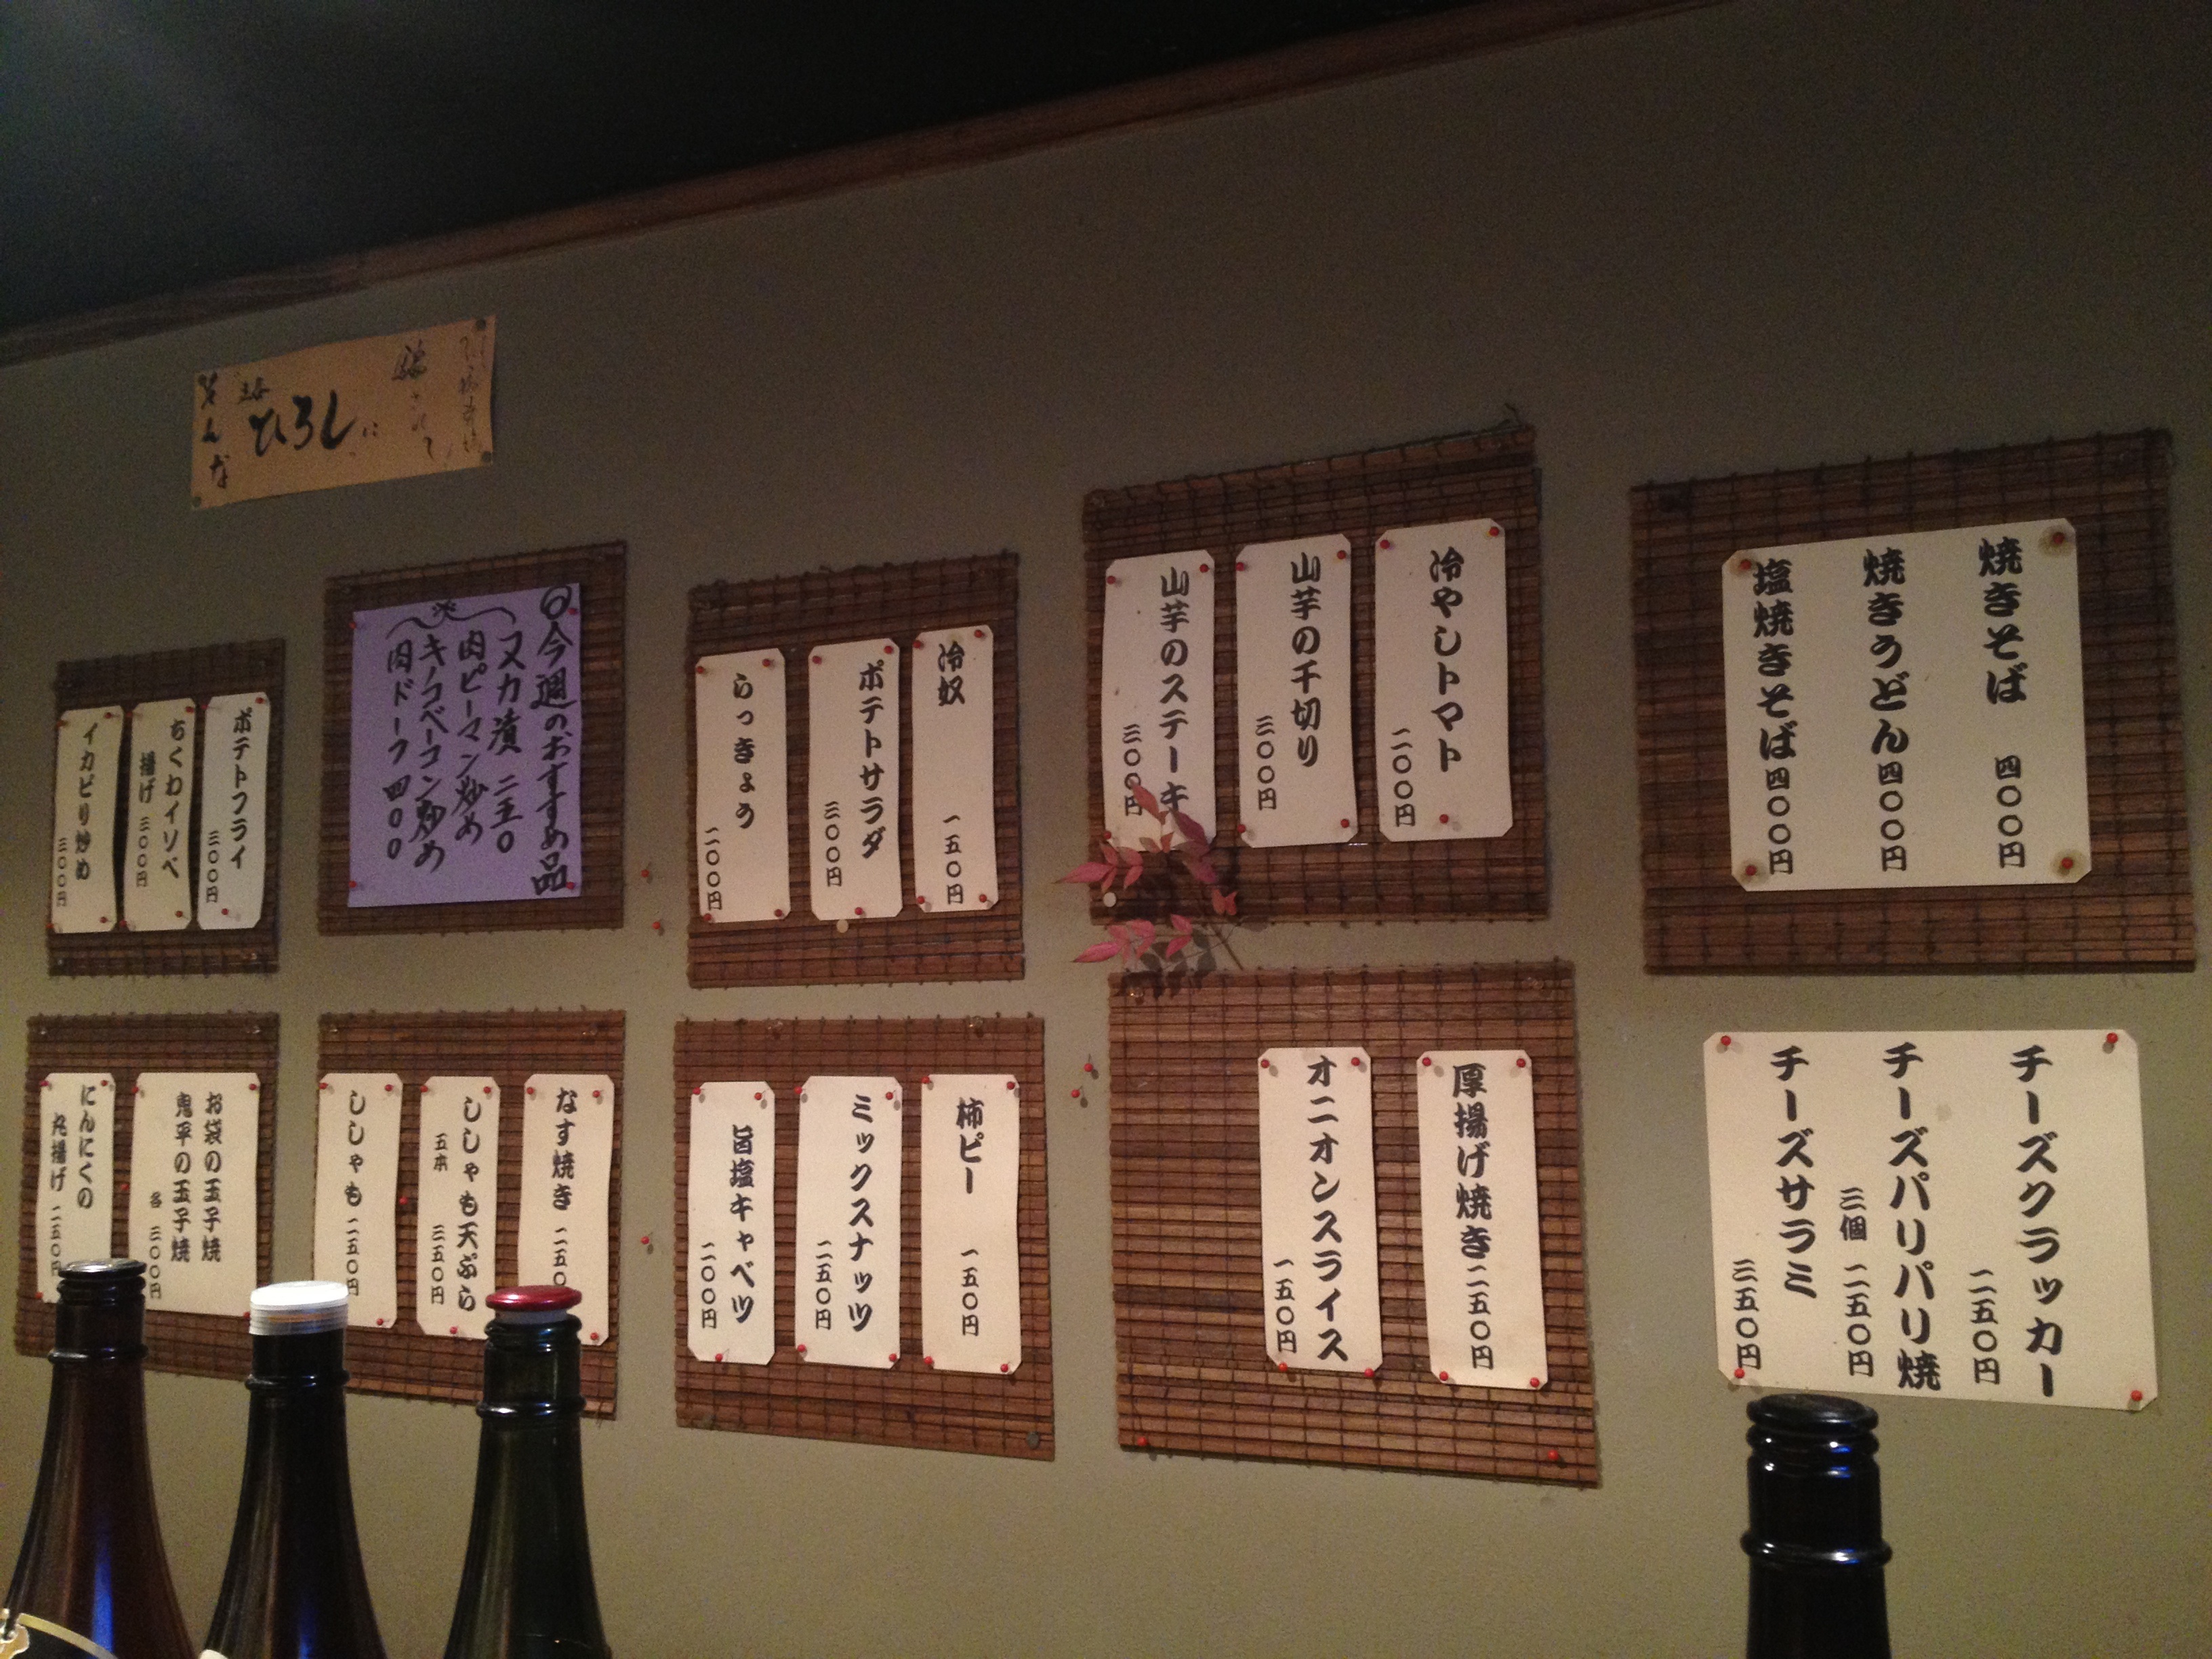 焼きそば 四〇〇円
焼きうどん 四〇〇円
塩焼きそば 四〇〇円
冷やしトマト 二〇〇円
山芋の千切り 三〇〇円
山芋のステーキ 三〇〇円
冷奴 一五〇円
ポテトサラダ 三〇〇円
らっきょう 一〇〇円
今週のおすすめ品
ヌカ漬 二五〇
肉ピーマン炒め
キノコベーコン炒め
肉ドーフ 四〇〇
ポテトフライ 三〇〇円
ちくわイソベ
揚げ 三〇〇円
イカピリ炒め 三〇〇円
ひろしに
そんな
チーズクラッカー
二五〇円
チーズパリパリ焼
三個 二五〇円
チーズサラミ
三五〇円
厚揚げ焼き 二五〇円
オニオンスライス
一五〇円
柿ピー 一五〇円
ミックスナッツ
二五〇円
旨塩キャベツ
二〇〇円
なす焼き 二五〇
ししゃも天ぷら
五本 三五〇円
ししゃも 二五〇円
お袋の玉子焼
鬼平の玉子焼
各 三〇〇円
にんにくの
丸揚げ 二五〇円